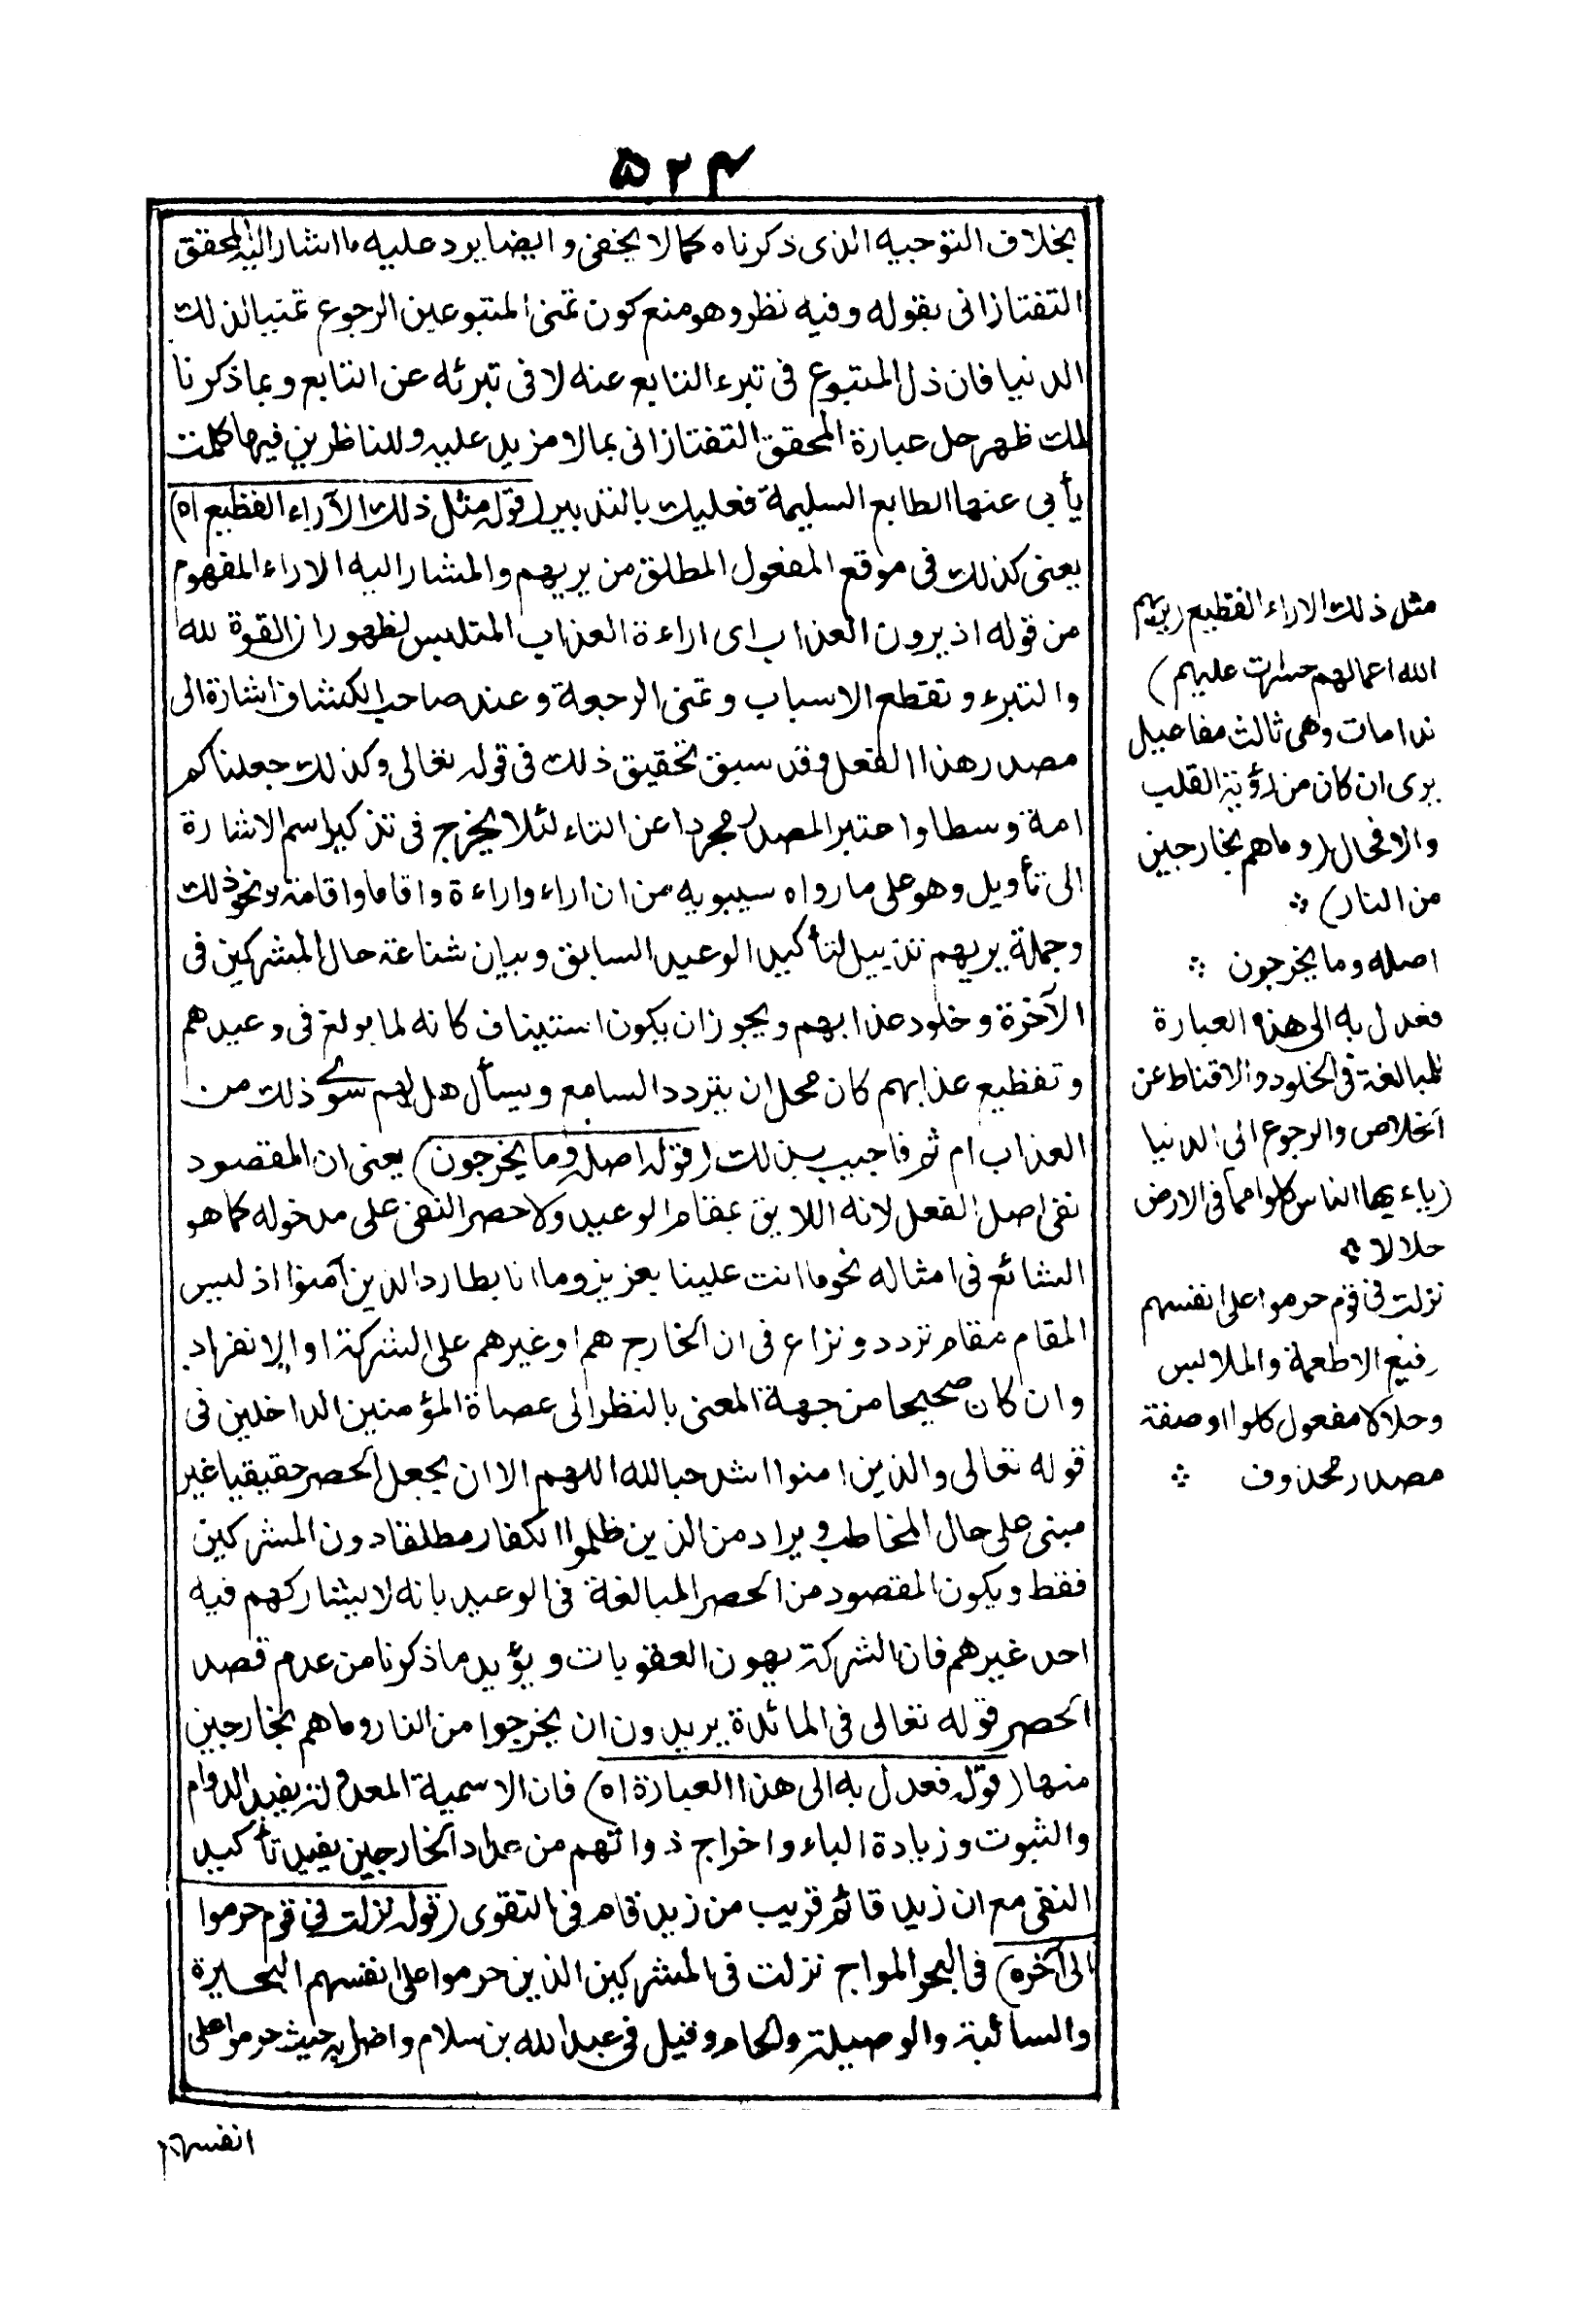 ۵۲۴
بخلاف التوجيه الذى ذكرناه كما لا يخفى وايضا يرد عليه ما اشار اليه المحقق
التفتازانى بقوله وفيه نظر وهو منع كون تمنى المتبوعين الرجوع تمنيا لذلك
الدنيا فان ذل المتبوع فى تبرء التابع عنه لا فى تبرئه عن التابع وبما ذكرنا
لك ظهر حل عبارة المحقق التفتازانى بما لا مزيد عليه وللناظرين فيها كلمت
يأبى عنها الطابع السليمة فعليك بالتدبير (قوله مثل ذلك الآراء الفظيع اه)
يعنى كذلك فى موقع المفعول المطلق من يريهم والمشار اليه الاراء المفهوم
من قوله اذ يرون العذاب اى اراءة العذاب المتلبس لظهور ان القوة لله
والتبرء وتقطع الاسباب وتمنى الرجعة وعند صاحب الكشاف اشارة الى
مصدر هذا الفعل وقد سبق تحقيق ذلك فى قوله تعالى وكذلك جعلناكم
امة وسطا واعتبر المصدر مجردا عن التاء لئلا يخرج فى تذكير اسم الاشارة
الى تأويل وهو على ما رواه سيبويه من ان اراء واراءة واقاما واقامة ونحو ذلك
وجملة يريهم تذييل لتأكيد الوعيد السابق وبيان شناعة حال المشركين فى
الآخرة وخلود عذابهم ويجوز ان يكون استيناف كانه لما بولغ فى وعيدهم
وتفظيع عذابهم كان محل ان يتردد السامع ويسأل هل لهم سوى ذلك من
العذاب ام ثم فاجيب بذلك (قوله اصله وما يخرجون) يعنى ان المقصود
نفى اصل الفعل لانه اللايق بمقام الوعيد ولا حصر النفى على مدخوله كما هو
الشائع فى امثاله نحو ما انت علينا بعزيز وما انا بطارد الذين آمنوا اذ ليس
المقام مقام تردد ونزاع فى ان الخارج هم او غيرهم على الشركة او الانفراد
وان كان صحيحا من جهة المعنى بالنظر الى عصاة المؤمنين الداخلين فى
قوله تعالى والذين امنوا اشد حبا لله اللهم الا ان يجعل الحصر حقيقيا غير
مبنى على حال المخاطب ويراد من الذين ظلموا الكفار مطلقا دون المشركين
فقط ويكون المقصود من الحصر المبالغة فى الوعيد بانه لا يشاركهم فيه
احد غيرهم فان الشركة يهون العقوبات ويؤيد ما ذكرنا من عدم قصد
الحصر قوله تعالى فى المائدة يريدون ان يخرجوا من النار وما هم بخارجين
منها (قوله فعدل به الى هذا العبارة اه) فان الاسمية المعدولة يفيد الدوام
والثبوت وزيادة الباء واخراج ذواتهم من عداد الخارجين يفيد تأكيد
النفى مع ان زيد قائم قريب من زيد قام فى التقوى (قوله نزلت فى قوم حرموا
الى آخره) فى البحر المواج نزلت فى المشركين الذين حرموا على انفسهم البحيرة
والسائبة والوصيلة والحام وقيل فى عبد الله بن سلام واضرابه حيث حرموا على
انفسهم
مثل ذلك الاراء الفظيع (يريهم
الله اعمالهم حسرات عليهم)
ندامات وهى ثالث مفاعيل
يرى ان كان من رؤية القلب
والا فحال (وما هم بخارجين
من النار) ؞
اصله وما يخرجون ؞
فعدل به الى هذه العبارة
للمبالغة فى الخلود والاقناط عن
الخلاص والرجوع الى الدنيا
(ياءيها الناس كلوا مما فى الارض
حلالا ؞
نزلت فى قوم حرموا على انفسهم
رفيع الاطعمة والملابس
وحلالا مفعول كلوا او صفة
مصدر محذوف ؞